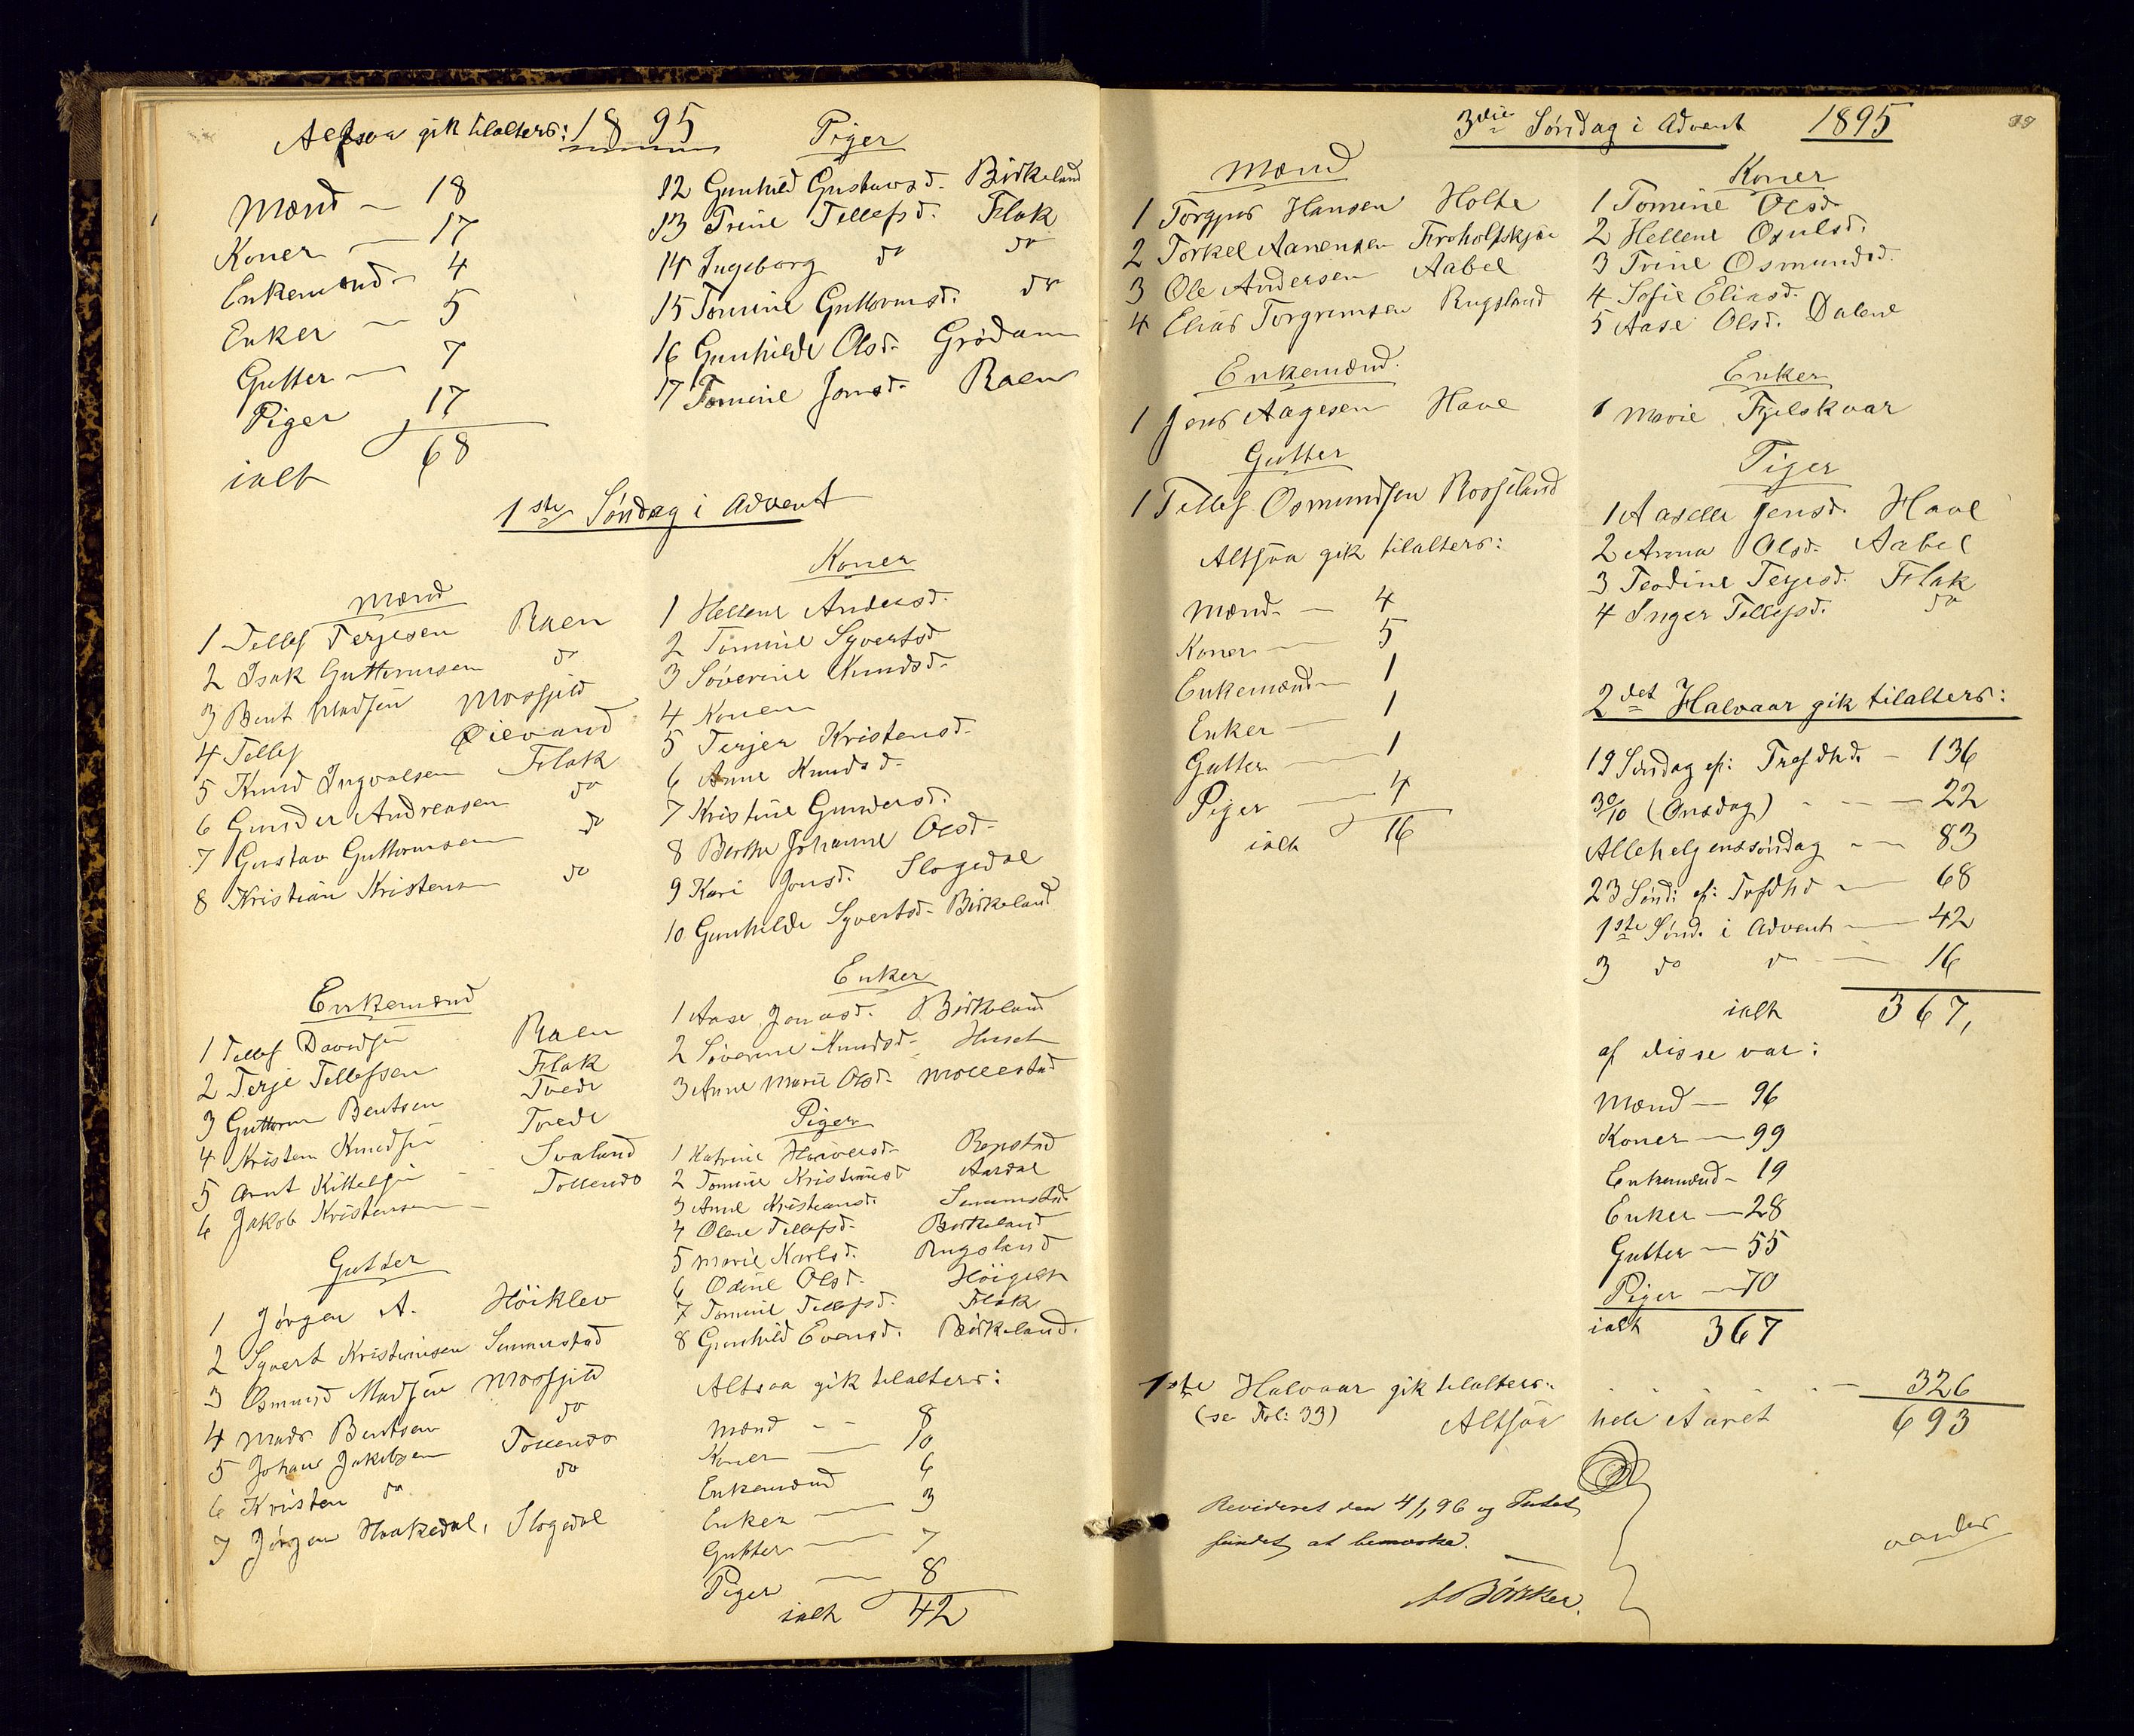 Altsaa gik tilalters: 1895
Mænd — 18
Koner — 17
Enkemænd — 4
Enker — 5
Gutter — 7
Piger 17
ialt 68
Piger
12 Gunhild Gustavsd. Birkeland
13 Trine Tellefsd. Flak
14 Ingeborg do do
15 Tomine Guttormsd. do
16 Gunhilde Olsd. Grödum
17 Tomine Jonsd. Raen
1ste Söndag i Advent
Mænd
1 Tellef Terjesen Raen
2 Isak Guttormsen do
3 Bent Madsen Mosfjeld
4 Tellef Øievand
5 Knud Ingvalsen Flak
6 Gunder Andreasen do
7 Gustav Guttormsen do
8 Kristian Kristensen do
Koner
1 Hellene Andersd.
2 Tomine Syvertsd.
3 Söverine Knudsd.
4 Konen
5 Terjer Kristensd.
6 Anne Knudsd.
7 Kristine Gundersd.
8 Berthe Johanne Olsd.
9 Kari Jonsd. Slogedal
10 Gunhilde Syvertsd. Birkeland
Enkemænd
1 Tellef Davidsen Raen
2 Terje Tellefsen Flak
3 Guttorm Bentsen Tvede
4 Kristen Knudsen Tvede
5 Arnt Kittelsen Svaland
6 Jakob Kristensen Tollends
Enker
1 Aase Jonasd. Birkeland
2 Söverine Knudsd.
3 Anne Marie Olsd. Mollestad
Gutter
1 Jörgen A. Höiklev
2 Syvert Kristiansen Senumstad
3 Osmund Madsen Mosfjeld
4 Mads Bentsen do
5 Johan Jakobsen Tollends
6 Kristen do do
7 Jörgen Haakedal, Slogedal
Piger
1 Katrine Repstad
2 Tomine Kristiansd. Aardal
3 Anne Kristiansd. Senumstad
4 Olene Tellefsd. Birkeland
5 Marie Karlsd. Rugsland
6 Odine Olsd. Höigilt
7 Tomine Tellefsd. Flak
8 Gunhild Evensd. Birkeland.
Altsaa gik tilalters:
Mænd — 8
Koner — 10
Enkemænd 6
Enker — 3
Gutter — 7
Piger — 8
ialt 42
3die Söndag i Advent 1895
39
Mænd
1 Torgjus Hansen Holte
2 Torkel Aanensen
3 Ole Andersen Aabel
4 Elias Torgrimsen Rugsland
Koner
1 Tomine Olsd.
2 Hellene Osulsd.
3 Trine Osmundsd.
4 Sofie Eliasd.
5 Aase Olsd. Dalene
Enkemænd.
1 Jens Aagesen Have
Enker
1 Marie Fjelskaar
Gutter
1 Tellef Osmundsen Rosseland
Piger
1 Aaselle Jensd. Have
2 Anna Olsd. Aabel
3 Teodine Terjesd. Flak
4 Inger Tellefsd. do
Altsaa gik tilalters:
Mænd — 4
Koner — 5
Enkemænd — 1
Enker — 1
Gutter — 1
Piger — 4
ialt 16
2det Halvaar gik tilalters:
19 Söndag ef: Trefdhd. — 136
30/10 (Onsdag) — 22
Allehelgenssöndag — 83
23 Sönd: ef: Trefdhd — 68
1ste Sönd. i Advent — 42
3 do do — 16
ialt 367,
af disse var:
Mænd — 96
Koner — 99
Enkemænd — 19
Enker — 28
Gutter — 55
Piger — 70
ialt 367
1ste Halvaar gik tilalters: — 326
(se Fol: 33)
Altsaa hele Aaret 693
Revideret den 4/1 96 og Intet
fundet at bemærke.